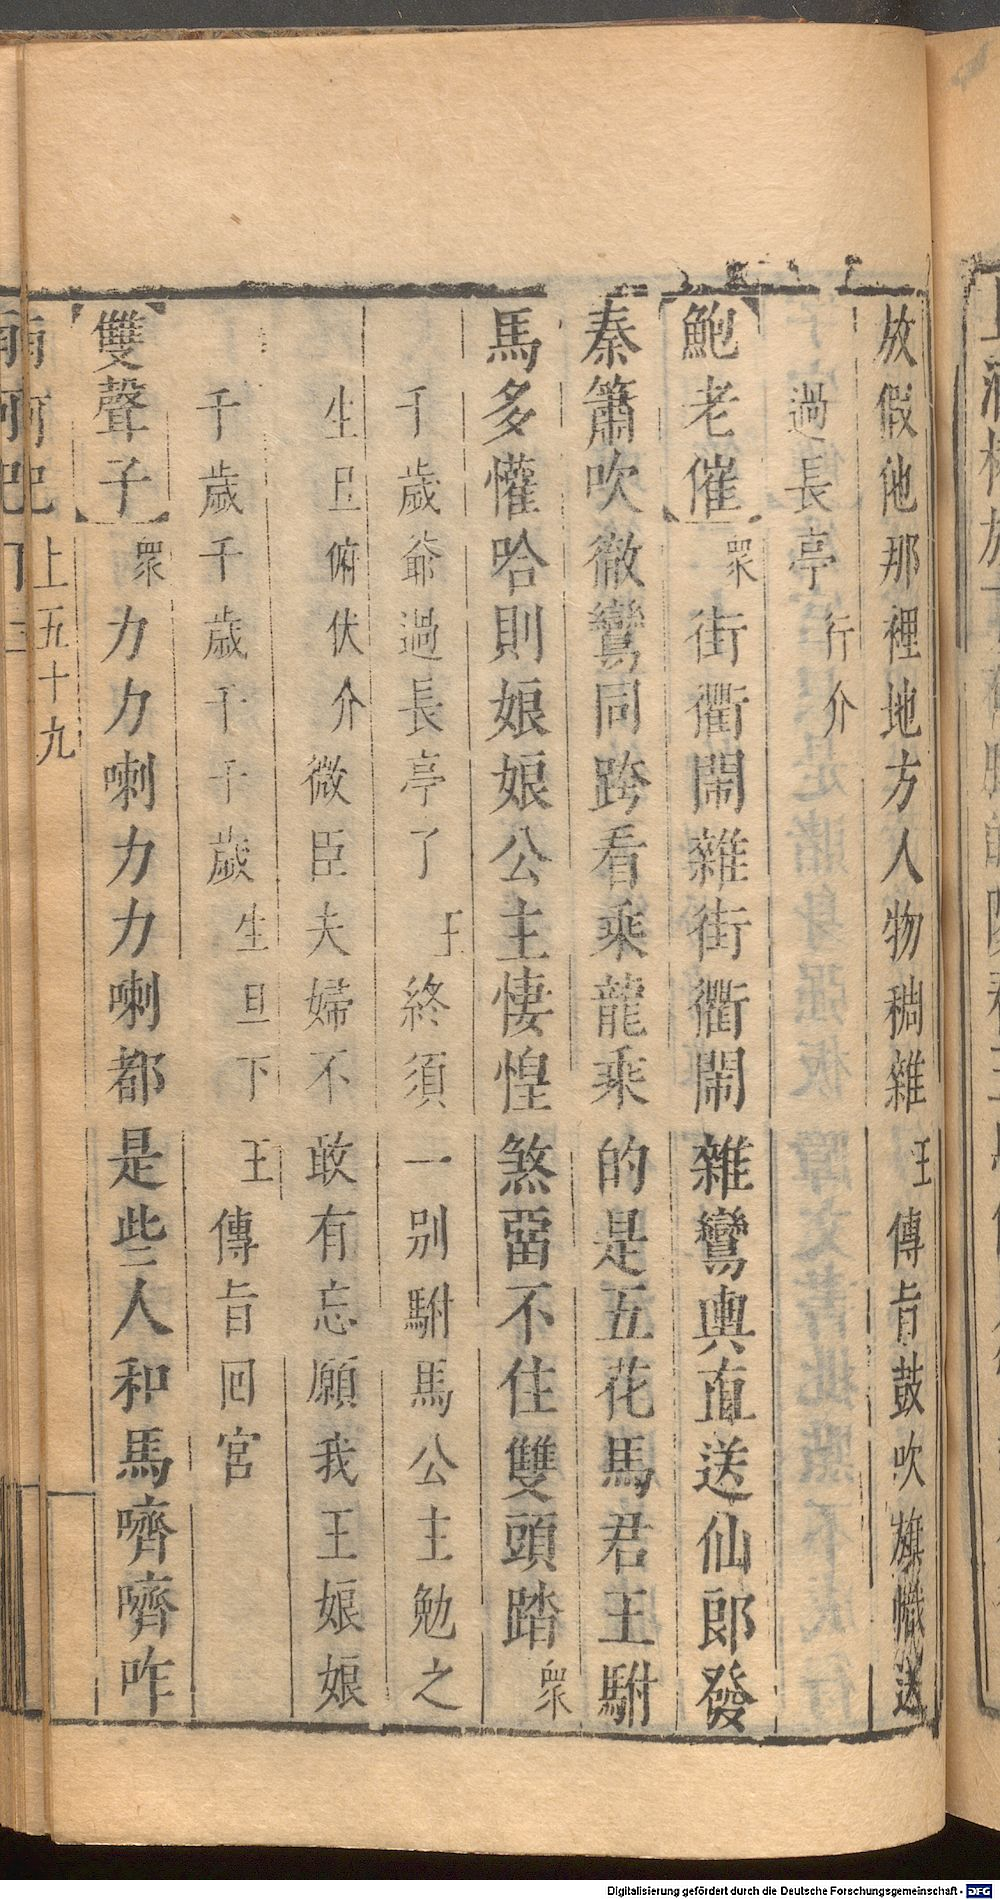 放假他那裡地方人物稠雜王傳旨鼓吹旗幟送
過長亭行介
【鮑老催】衆街衢鬧雜街衢鬧雜鸞輿直送仙郎發
秦簫吹徹鸞同跨看乘龍乘的是五花馬君王駙
馬多懽哈則娘娘公主悽惶煞䛩不住雙頭踏衆
千歲爺過長亭了王終須一别駙馬公主勉之
生旦俯伏介微臣夫婦不敢有忘願我王娘娘
千歲千歲千千歲生旦下王傳旨回宮
【雙聲子】衆力力喇力力喇都是些人和馬嚌嚌咋
上五十九
Digitalisierung gefördert durch die Deutsche Forschungsgemeinschaft - DFG